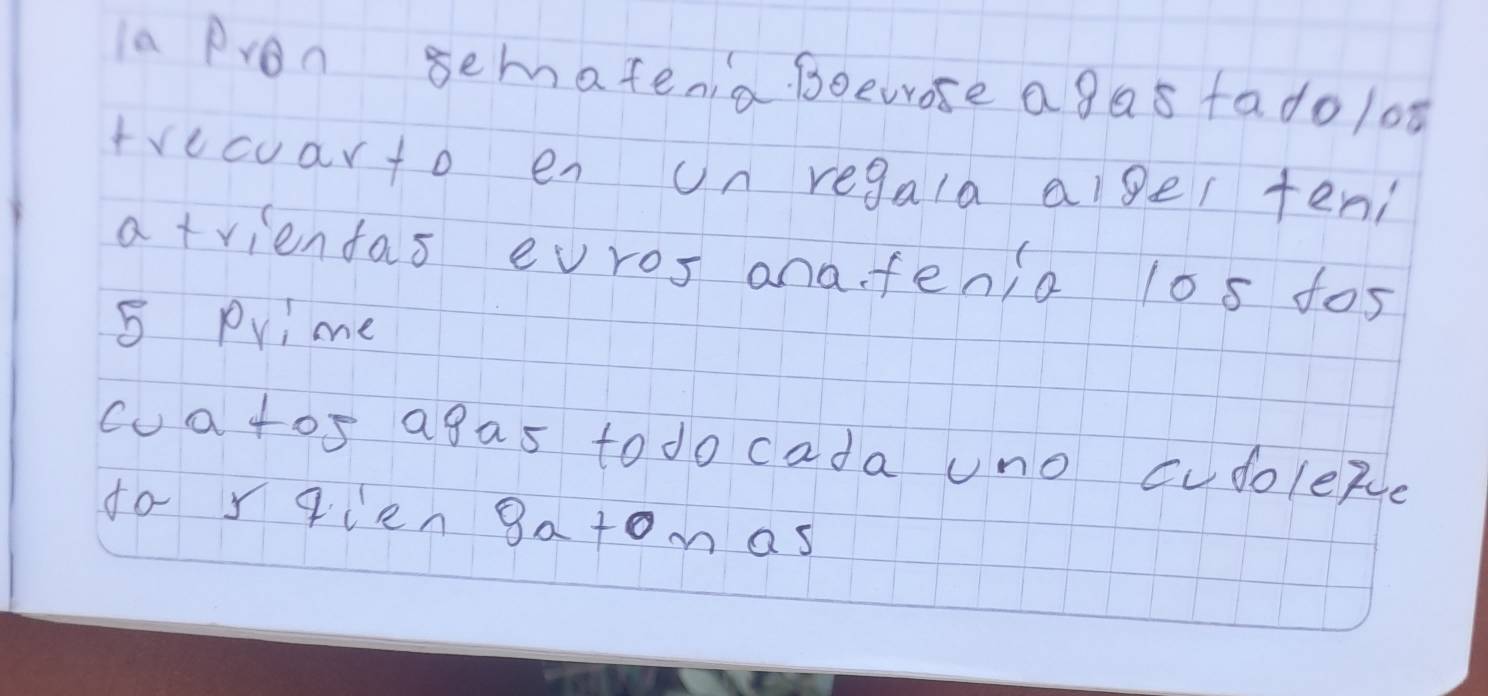 la Pron gemafenía Boeurose agastadolos
trecuarto en un regala algel teni
atriendas euros anafenía los dos
5 Prime
cuatos agas todo cada uno cudoleque
da y qien gatomas